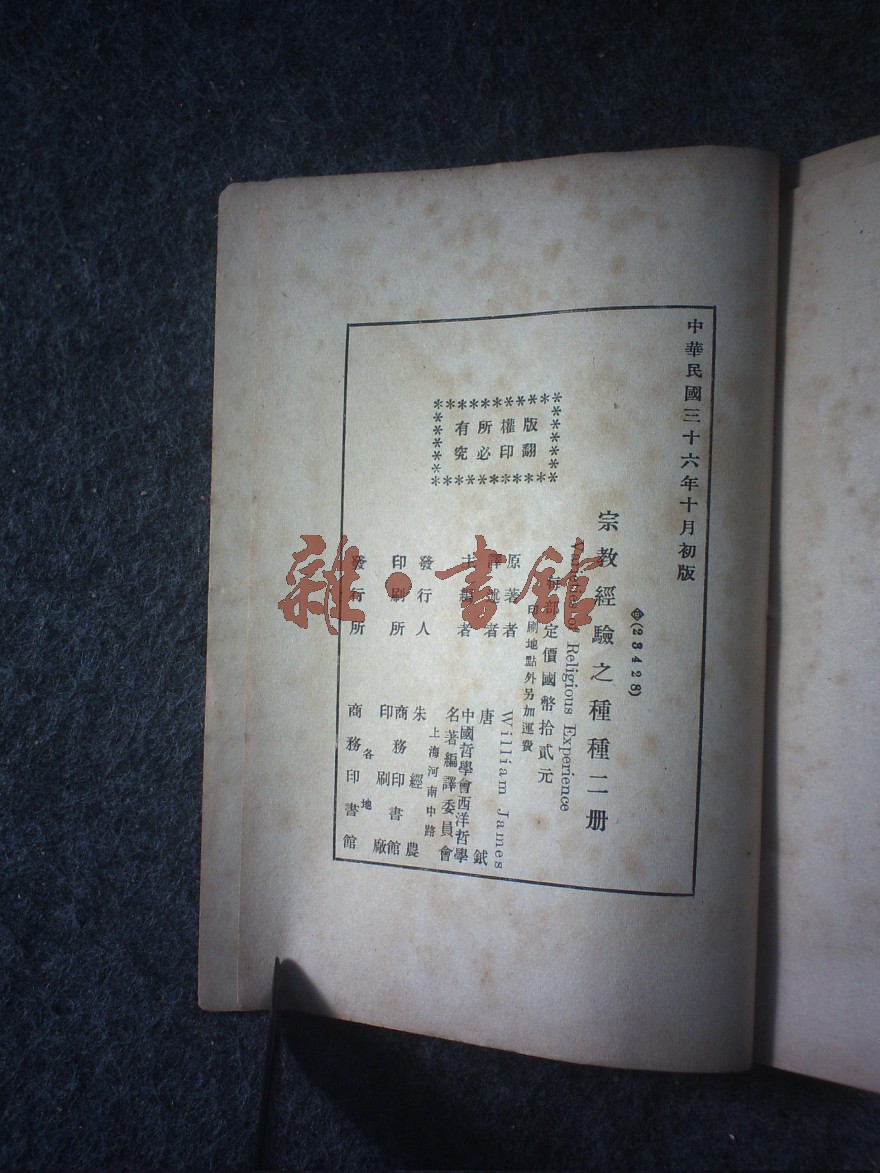 中華民國三十六年十月初版
㊥(23428)
宗教經驗之種種二册
Varieties of Religious Experience
每部定價國幣拾貳元
印刷地點外另加運費
版權所有
翻印必究
原著者 William James
譯述者 唐鉞
主編者 中國哲學會西洋哲學名著編譯委員會
發行人 朱經農
上海河南中路
印刷所 商務印書館印刷廠
發行所 商務印書館
各地
雜·書館